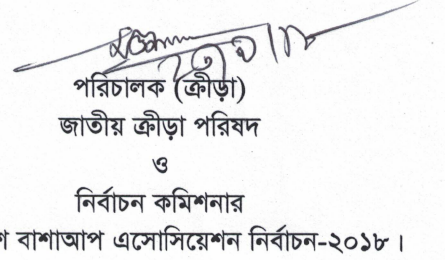 পরিচালক (ক্রীড়া)
জাতীয় ক্রীড়া পরিষদ
ও
নির্বাচন কমিশনার
বাশাআপ এসোসিয়েশন নির্বাচন-২০১৮।